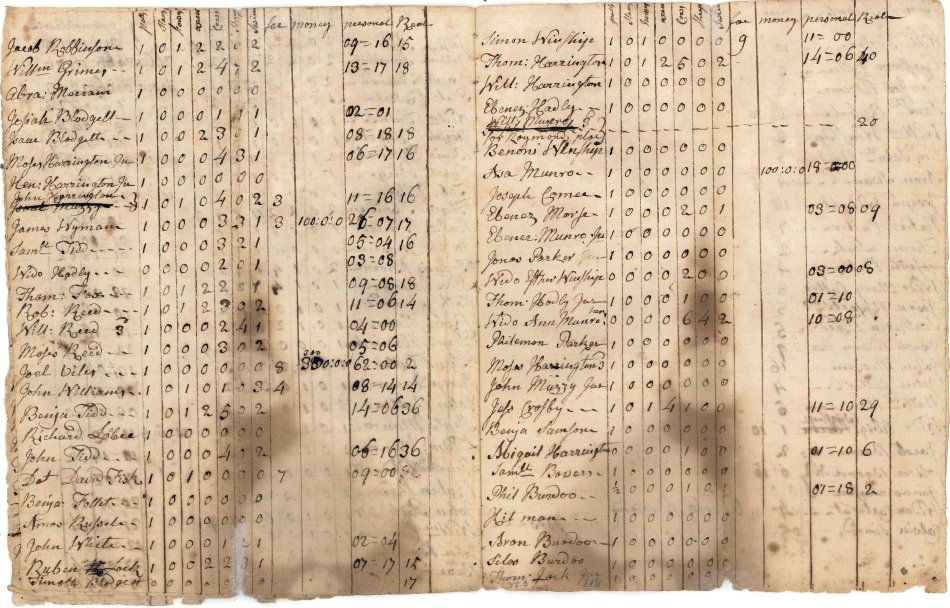 fac money personal Real
Jacob Robbinson 1 0 1 2 2 0 2 09=16 15
Willm Grimes 1 0 1 2 4 7 2 13=17 18
Abra: Merriam 1 0 0 0 0 0 0
Josiah Blodgett 1 0 0 0 1 1 1 02=01
Isaac Blodgett 1 0 0 2 3 0 1 08=18 18
Moses Harrington Ju 1 0 0 0 4 3 1 06=17 16
Hen: Harrington Ju 1 0 0 0 0 0 0
John Harrington 1 0 1 0 4 0 2 3 11=16 16
James Wyman 1 0 0 0 3 3 1 3 100:0:0 26=07 17
Samll Tidd 1 0 0 0 3 2 1 05=04 16
Wido Hadly 0 0 0 0 2 0 1 03=08
Thom: 1 0 1 2 2 0 1 09=08 18
Rob: Reed 1 0 1 2 3 0 2 11=06 14
Will: Reed 3 1 0 0 0 2 4 1 04=00
Moses Reed 1 0 0 0 3 0 2 05=06
Joel Viles 1 0 0 0 0 0 0 8 300:0:0 62=00 2
John Williams 1 0 1 0 1 0 3 4 08=14 14
Benja Tidd 1 0 1 2 5 0 2 14=06 36
Richard Lobee 1 0 0 0 0 0 0
John Tidd 1 0 0 0 4 0 2 06=16 36
Dot David Fisk 1 0 1 0 0 0 0 7 09=00
Benja: Follet 1 0 0 0 0 0 0
Amos Russel 1 0 0 0 0 0 0
John White 1 0 0 0 1 2 1 02=04
Ruben Lock 1 0 0 2 2 3 1 07=17 15
Timoth Blodgett 0 0 0 0 0 0 0 17
fac money personal Real
Simon Winship 1 0 1 0 0 0 0 9 11=00
Thom: Harrington 1 0 1 2 5 0 2 14=06 40
Will: Harrington 1 0 0 0 0 0 0
Ebenez: Hadly 1 0 0 0 0 0 0
Willm Munro
Raymond plac 20
Benoni Winship 1 0 0 0 0 0 0
Asa Munro 1 0 0 0 0 0 0 100:0:0 18=00
Joseph Comee 1 0 0 0 0 0 0
Ebenez Morse 1 0 0 0 2 0 1 03=08 09
Ebenez: Munro Ju 1 0 0 0 0 0 0
Jonas Parker Jur 1 0 0 0 0 0 0
Wido Esther Winship 0 0 0 0 2 0 0 03=00 08
Thom: Hadly Jur 1 0 0 0 1 0 0 01=10
Wido Ann Munro 0 0 0 0 6 4 2 10=08
Philemon Parker 1 0 0 0 0 0 0
Moses Harrington 3 1 0 0 0 0 0 0
John Muzzy Jur 1 0 0 0 0 0 0
Jess Crosby 1 0 1 4 1 0 0 11=10 29
Benja Samson 1 0 0 0 0 0 0
Abigail Harrington 0 0 0 0 1 0 0 01=10 6
Samll Bowers 1 0 0 0 0 0 0
Phil Burdoo ½ 0 0 0 1 0 1 01=18 2
Hitman 1 0 0 0 0 0 0
Aron Burdoo 1 0 0 0 0 0 0
Silas Burdoo 1 0 0 0 0 0 0
Thom: Lock Jur